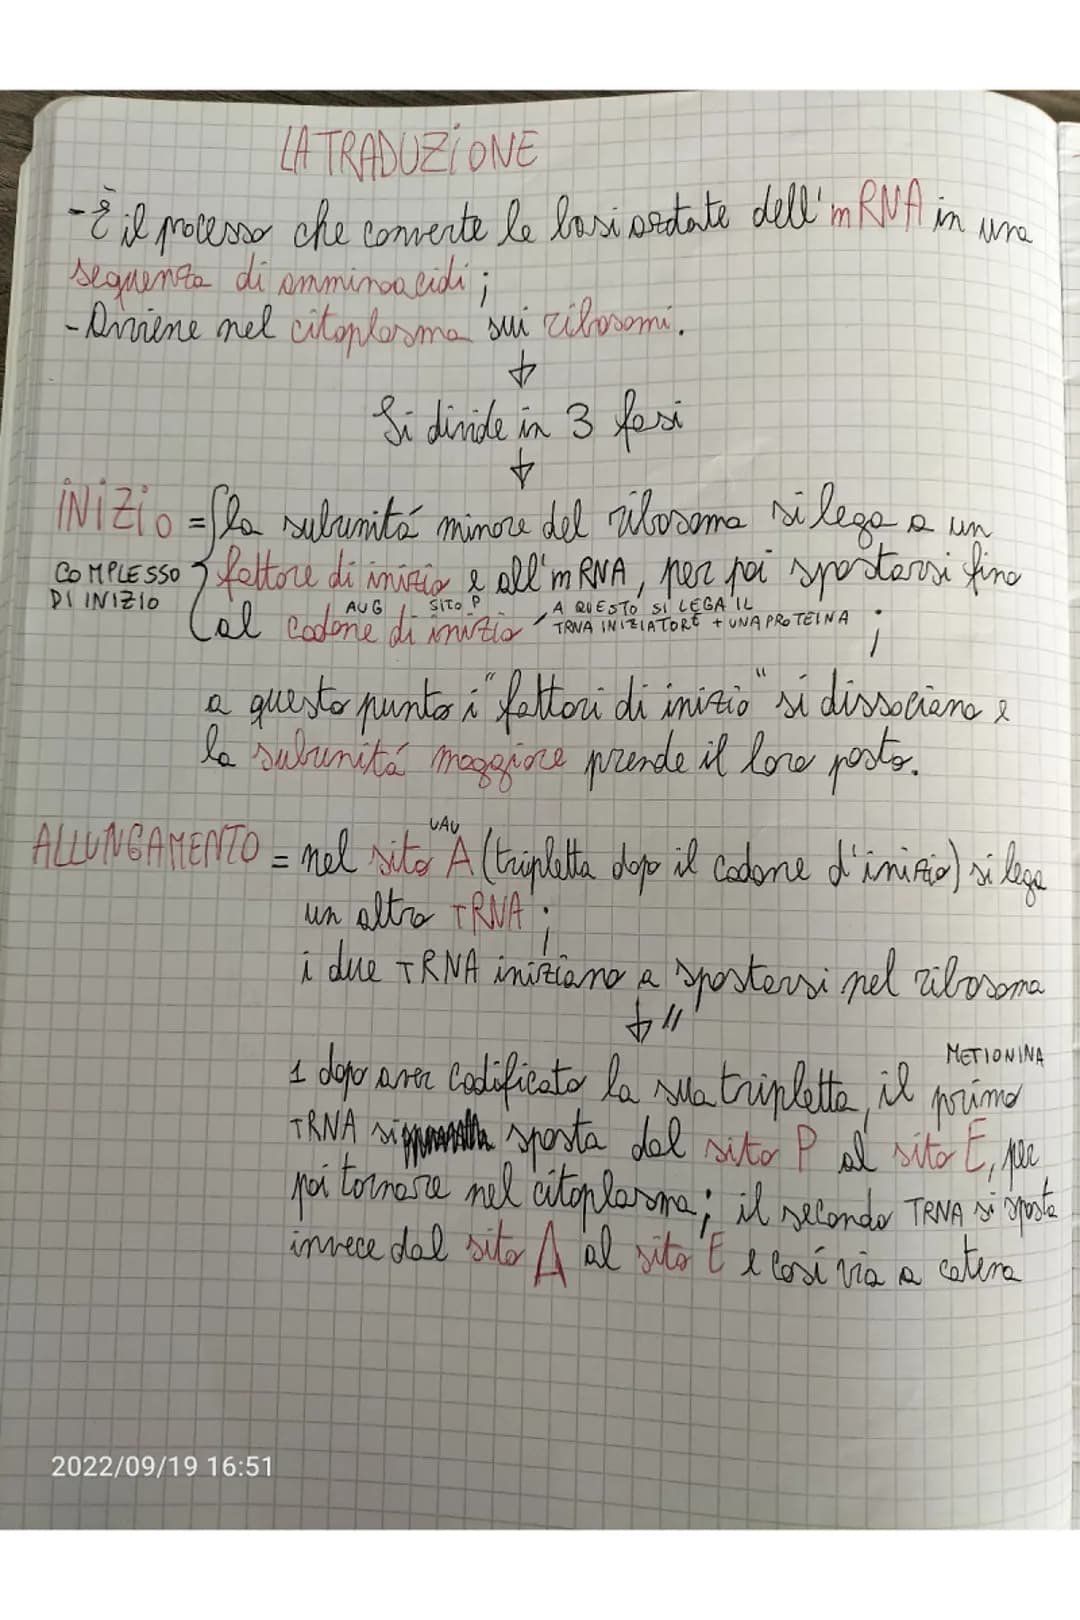 LA TRADUZIONE
- È il processo che converte le basi azotate dell'mRNA in una
sequenza di amminoacidi;
- Avviene nel citoplasma sui ribosomi.
↓
Si divide in 3 fasi
↓
INIZIO = la subunitá minore del ribosoma si lega a un
COMPLESSO DI INIZIO
fattore di inizio e all'mRNA, per poi spostarsi fino
AUG SITO P A QUESTO SI LEGA IL
al codone di inizio TRNA INIZIATORE + UNA PROTEINA ;
a questo punto i "fattori di inizio" si dissociano e
la subunitá maggiore prende il loro posto.
UAU
ALLUNGAMENTO = nel sito A (tripletta dopo il codone d'inizio) si lega
un altro TRNA ;
i due TRNA iniziano a spostarsi nel ribosoma
↓ "
METIONINA
1 dopo aver codificato la sua tripletta, il primo
TRNA si sposta dal sito P al sito E, per
poi tornare nel citoplasma; il secondo TRNA si sposta
invece dal sito A al sito E e cosí via a catena
2022/09/19 16:51